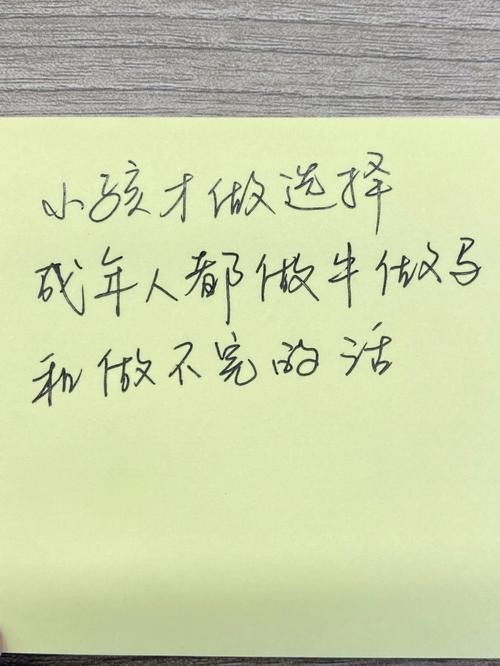 小孩才做选择
成年人都做牛做马
和做不完的活